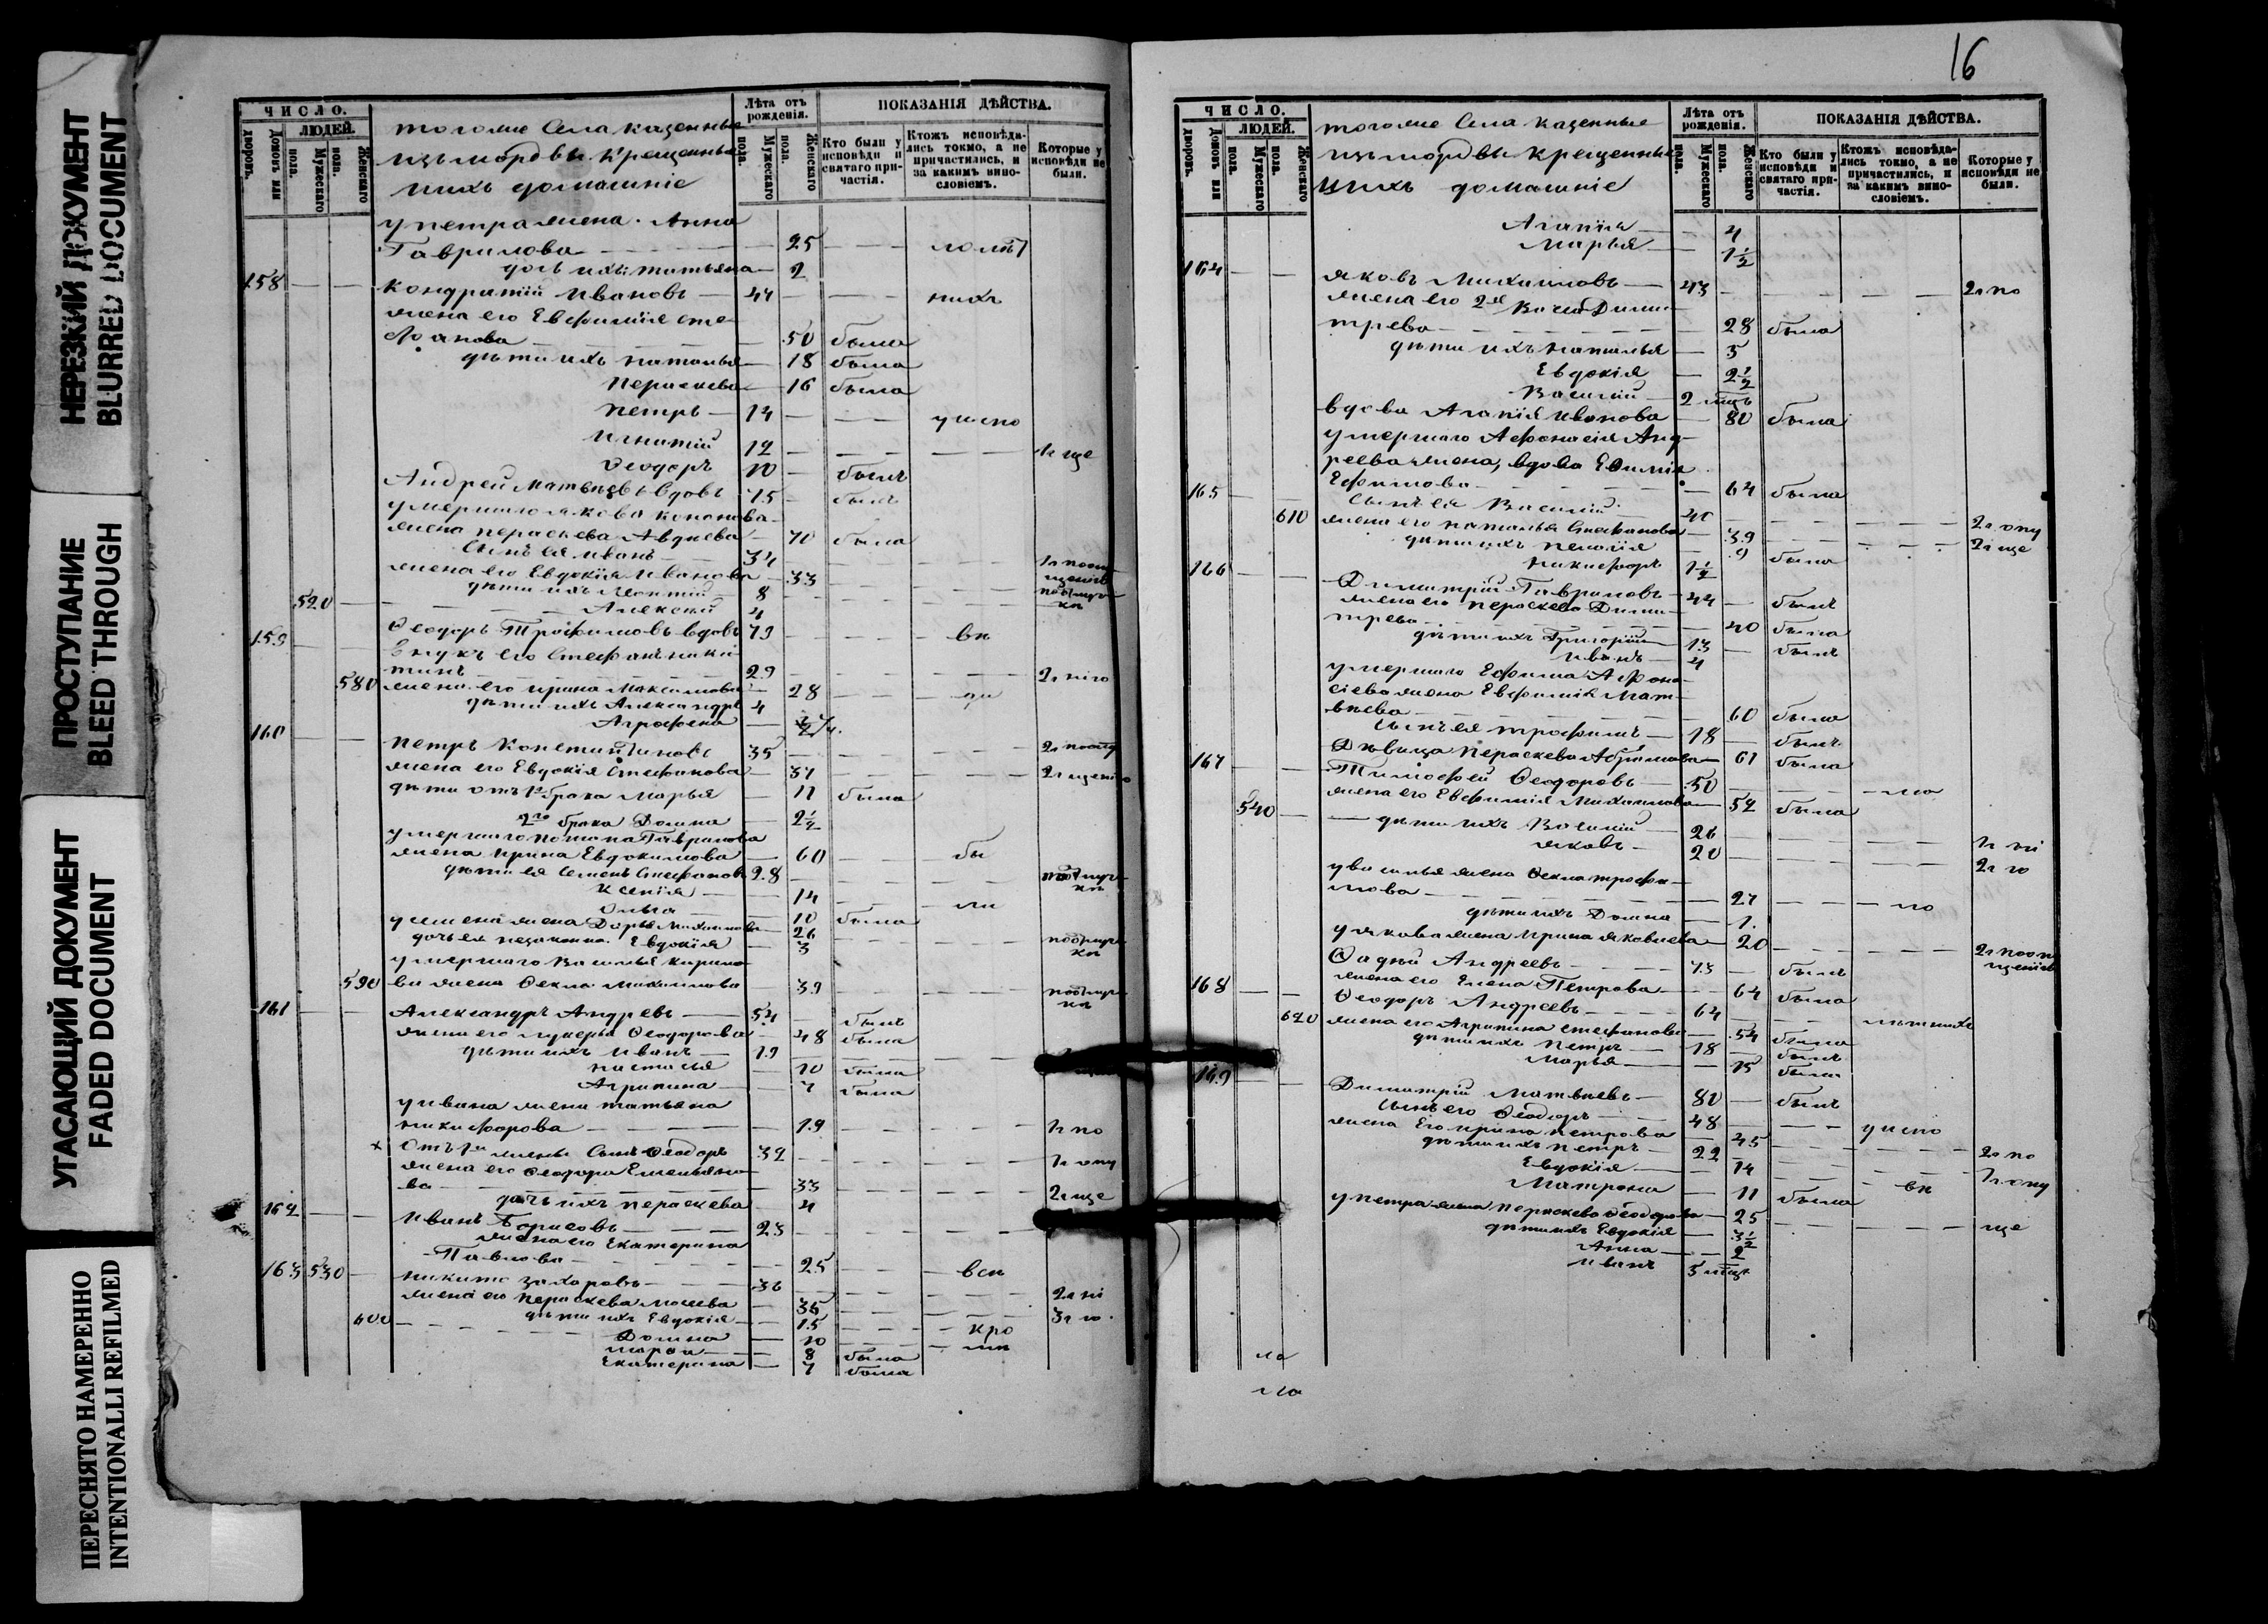 НЕРЕЗКИЙ ДОКУМЕНТ
BLURRED DOCUMENT
ПРОСТУПАНИЕ
BLEED THROUGH
УГАСАЮЩИЙ ДОКУМЕНТ
FADED DOCUMENT
ПЕРЕСНЯТО НАМЕРЕННО
INTENTIONALLI REFILMED
ЧИСЛО.
Домовъ или дворовъ.
ЛЮДЕЙ.
Мужескаго пола.
Женскаго пола.
тогоже Села казенные
изъ мордвы крещенные
и ихъ домашніе
Лѣта отъ рожденія.
Мужескаго пола.
Женскаго пола.
ПОКАЗАНІЯ ДѢЙСТВА.
Кто были у исповѣди и святаго причастія.
Ктожъ исповѣдались токмо, а не причастились, и за какимъ винословіемъ.
Которые у исповѣди не были.
у петра жена Анна
Гаврилова 25
дочь ихъ татьяна 2
158 Кондратий Ивановъ 47
жена его Евфимія сте
фанова 50 была
дѣти ихъ наталья 18 была
Пераскева 16 была
Петръ 14
Игнатій 12
Ѳеодоръ 10 былъ
Андрей Матвѣевъ вдовъ 75 былъ
умершаго Якова кононова
жена пераскева Авдиева 70 была
Сынъ ея Иванъ 34
жена его Евдокія Иванова 33
дѣти ихъ Леонтій 8
520 Алексій 4
159 Ѳеодоръ Трофимовъ вдовъ 79
Внукъ его Стефанъ ники
тинъ 29
580 жена его ирина Максимова 28
дѣти ихъ Александръ 4
Агрофена
160 Петръ Констинтиновъ 35
жена его Евдокія Стефанова 37
дѣти отъ 1го брака Марья 11 была
2го брака Домна 2½
умершаго потапа Гаврилова
жена ирина Евдокимова 60
дѣти ея Семенъ Стефановъ 28
Ксенія 14
Ольга 10 была
у семена жена Дарья Михаилова 26
дочь ея незаконна Евдокія 3
умершаго Василья кирило
590 ва жена Ѳекла Михаилова 39
161 Александръ Андреевъ 54 былъ
жена его лукерья Ѳеодорова 48 была
дѣти ихъ Иванъ 19
настасья 10 была
Агрипина 7 была
у ивана жена татьяна
никифорова 19
х Отъ 1й жены Сынъ Ѳеодоръ 32
жена его Ѳеодора Емельяно
ва 33
дочь ихъ пераскева 4
162 Иванъ Борисовъ 23
жена его Екатерина
Павлова 25
163 530 никита захаровъ 36
жена его Пераскева Мосеева 35
600 дѣти ихъ Евдокія 15
Домна 10
марѳа 8 была
Екатерина 7 была
16
ЧИСЛО.
Домовъ или дворовъ.
ЛЮДЕЙ.
Мужескаго пола.
Женскаго пола.
тогоже Села казенные
изъ мордвы крещенные
и ихъ домашніе
Лѣта отъ рожденія.
Мужескаго пола.
Женскаго пола.
ПОКАЗАНІЯ ДѢЙСТВА.
Кто были у исповѣди и святаго причастія.
Ктожъ исповѣдались токмо, а не причастились, и за какимъ винословіемъ.
Которые у исповѣди не были.
Агапія 4
Марья 1½
164 яковъ Михаиловъ 43
жена его 2я Васса Дими
трева 28 была
дѣти ихъ наталья 5
Евдокія 2½
Василій 2
вдова Агапія Иванова 80 была
умершаго Афонасія Анд
реева жена, вдова Евимія
165 Ефимова 64 была
Сынъ ея Василій 40
610 жена его наталья Стефанова 39
дѣти ихъ пелагія 9 была
никифоръ 1½
166 Димитрій Гавриловъ 44 былъ
жена его пераскева Дими
трева 40 была
дѣти ихъ Григорій 13 былъ
Иванъ 4
умершаго Ефима Афона
сіева жена Евфимія Мат
вѣева 60 была
сынъ ея трофимъ 18 былъ
Дѣвица Пераскева Абрамова 61 была
167 Тимофей Ѳеодоровъ 50
жена его Евфимія Михаилова 52 была
540 дѣти ихъ Василій 26
яковъ 20
у василья жена Ѳекла трофи
мова 27
дѣти ихъ Домна 1.
у якова жена ирина яковлева 20
Ѳадѣй Андреевъ 73 былъ
168 жена его Елена Петрова 64 была
Ѳеодоръ Андреевъ 64
620 жена его Агрипина стефанова 54 была
дѣти ихъ Петръ 18 былъ
Марья 15 была
169 Димитрій Матвѣевъ 80 былъ
сынъ его Ѳеодоръ 48
жена Его ирина петрова 45
дѣти ихъ петръ 22
Евдокія 14
Матрона 11 была
у петра жена пераскева Ѳеодорова 25
дѣти ихъ Евдокія 3½
Анна 2
Иванъ 5